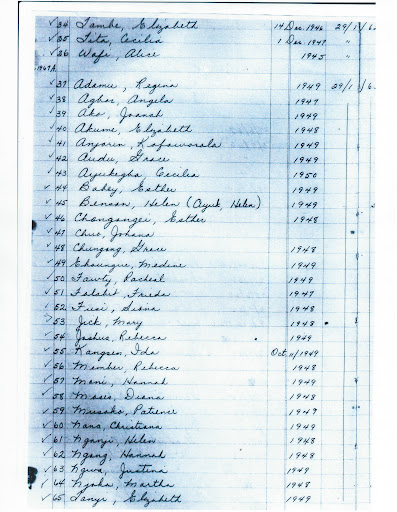 ✓ 34 Tambe, Elizabeth 14 Dec. 1946 29/1/6
✓ 35 Tita, Cecilia 1 Dec. 1947 "
✓ 36 Wafi, Alice 1945 "
1967A.
✓ 37 Adamu, Regina 1949 29/1/6.
✓ 38 Agbor, Angela 1947
✓ 39 Ako, Joanah 1949
✓ 40 Akume, Elizabeth 1948
✓ 41 Anjorin Kofoworola 1949
✓ 42 Audu, Grace 1949
✓ 43 Ayukegba, Cecilia 1950
✓ 44 Bakey, Esther 1949
✓ 45 Benson, Helen (Ayuk, Helen) 1949
✓ 46 Chongongei, Esther 1948
✓ 47 Chuo, Johana
✓ 48 Chungong, Grace 1948
✓ 49 Ekoungue, Medine 1949
✓ 50 Fawty, Pacheal 1949
✓ 51 Folabit, Frieda 1947
✓ 52 Fusi, Siona 1948
✓ 53 Jick, Mary 1948
✓ 54 Joshua, Rebecca 1949
✓ 55 Kangsen, Ida Oct. 11/1949
✓ 56 Member, Rebecca 1948
✓ 57 Moni, Hannah 1949
✓ 58 Moses, Diana 1948
✓ 59 Musoko, Patience 1947
✓ 60 Nana, Christiana 1949
✓ 61 Nganji, Helen 1948
✓ 62 Ngang, Hannah 1948
✓ 63 Ngwa, Justina 1949
✓ 64 Njoka, Martha 1948
✓ 65 Tanyi, Elizabeth 1949